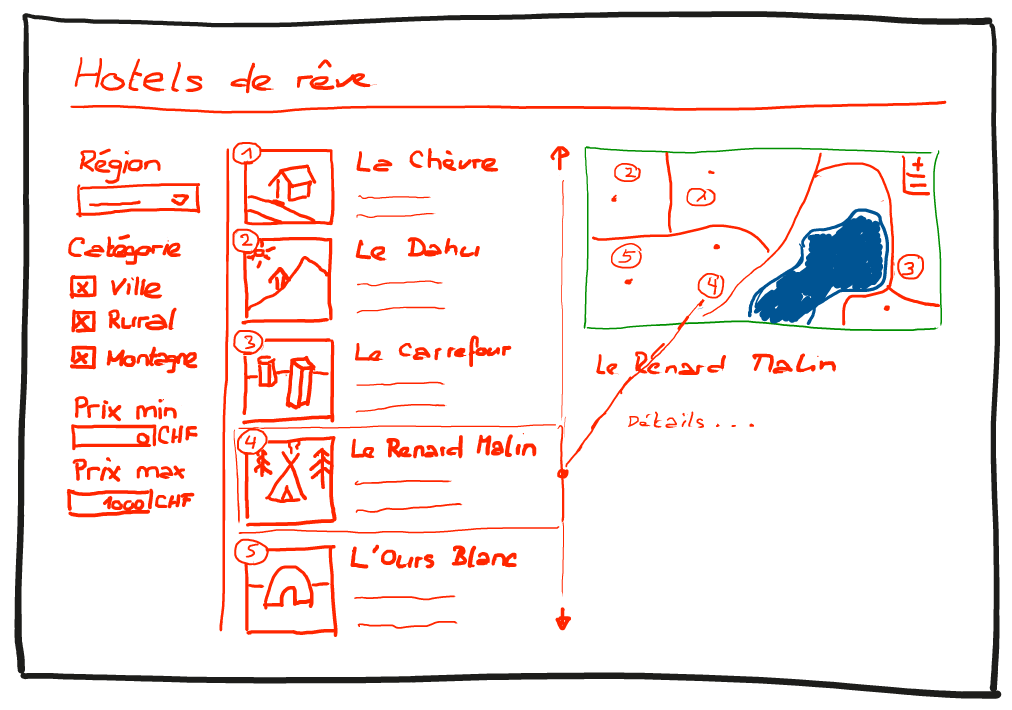 Hotels de rêve
Région
Catégorie
x Ville
x Rural
x Montagne
Prix min
0 CHF
Prix max
1000 CHF
1
La Chèvre
2
Le Dahu
3
Le Carrefour
4
Le Renard Malin
5
L'Ours Blanc
2
1
5
4
3
+
Le Renard Malin
Détails...